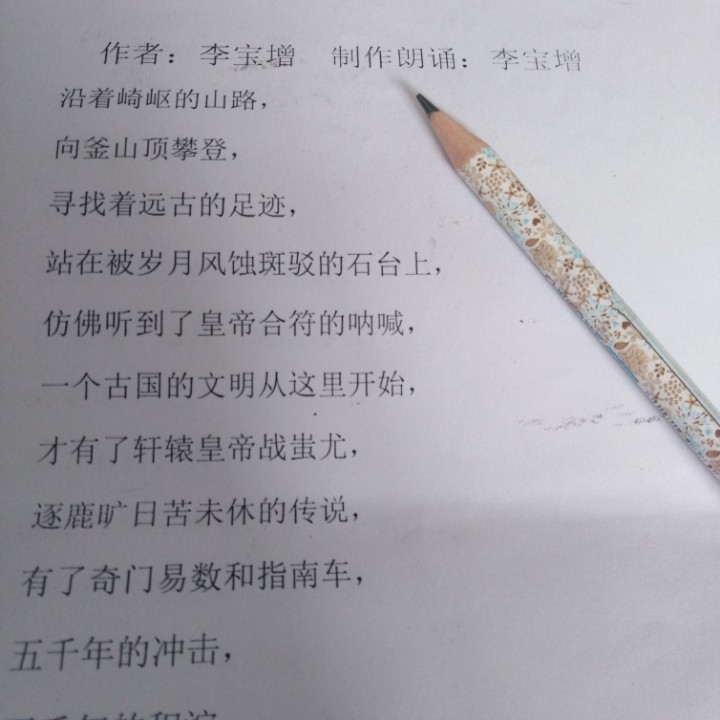 作者：李宝增 制作朗诵：李宝增
沿着崎岖的山路，
向釜山顶攀登，
寻找着远古的足迹，
站在被岁月风蚀斑驳的石台上，
仿佛听到了皇帝合符的呐喊，
一个古国的文明从这里开始，
才有了轩辕皇帝战蚩尤，
逐鹿旷日苦未休的传说，
有了奇门易数和指南车，
五千年的冲击，